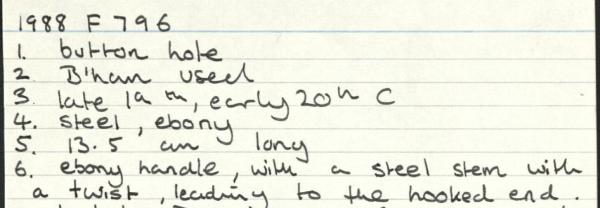 1988 F 796
1. button hole
2 B'ham used
3. late 19th, early 20th C
4. steel, ebony
5. 13.5 cm long
6. ebony handle, with a steel stem with
a twist, leading to the hooked end.